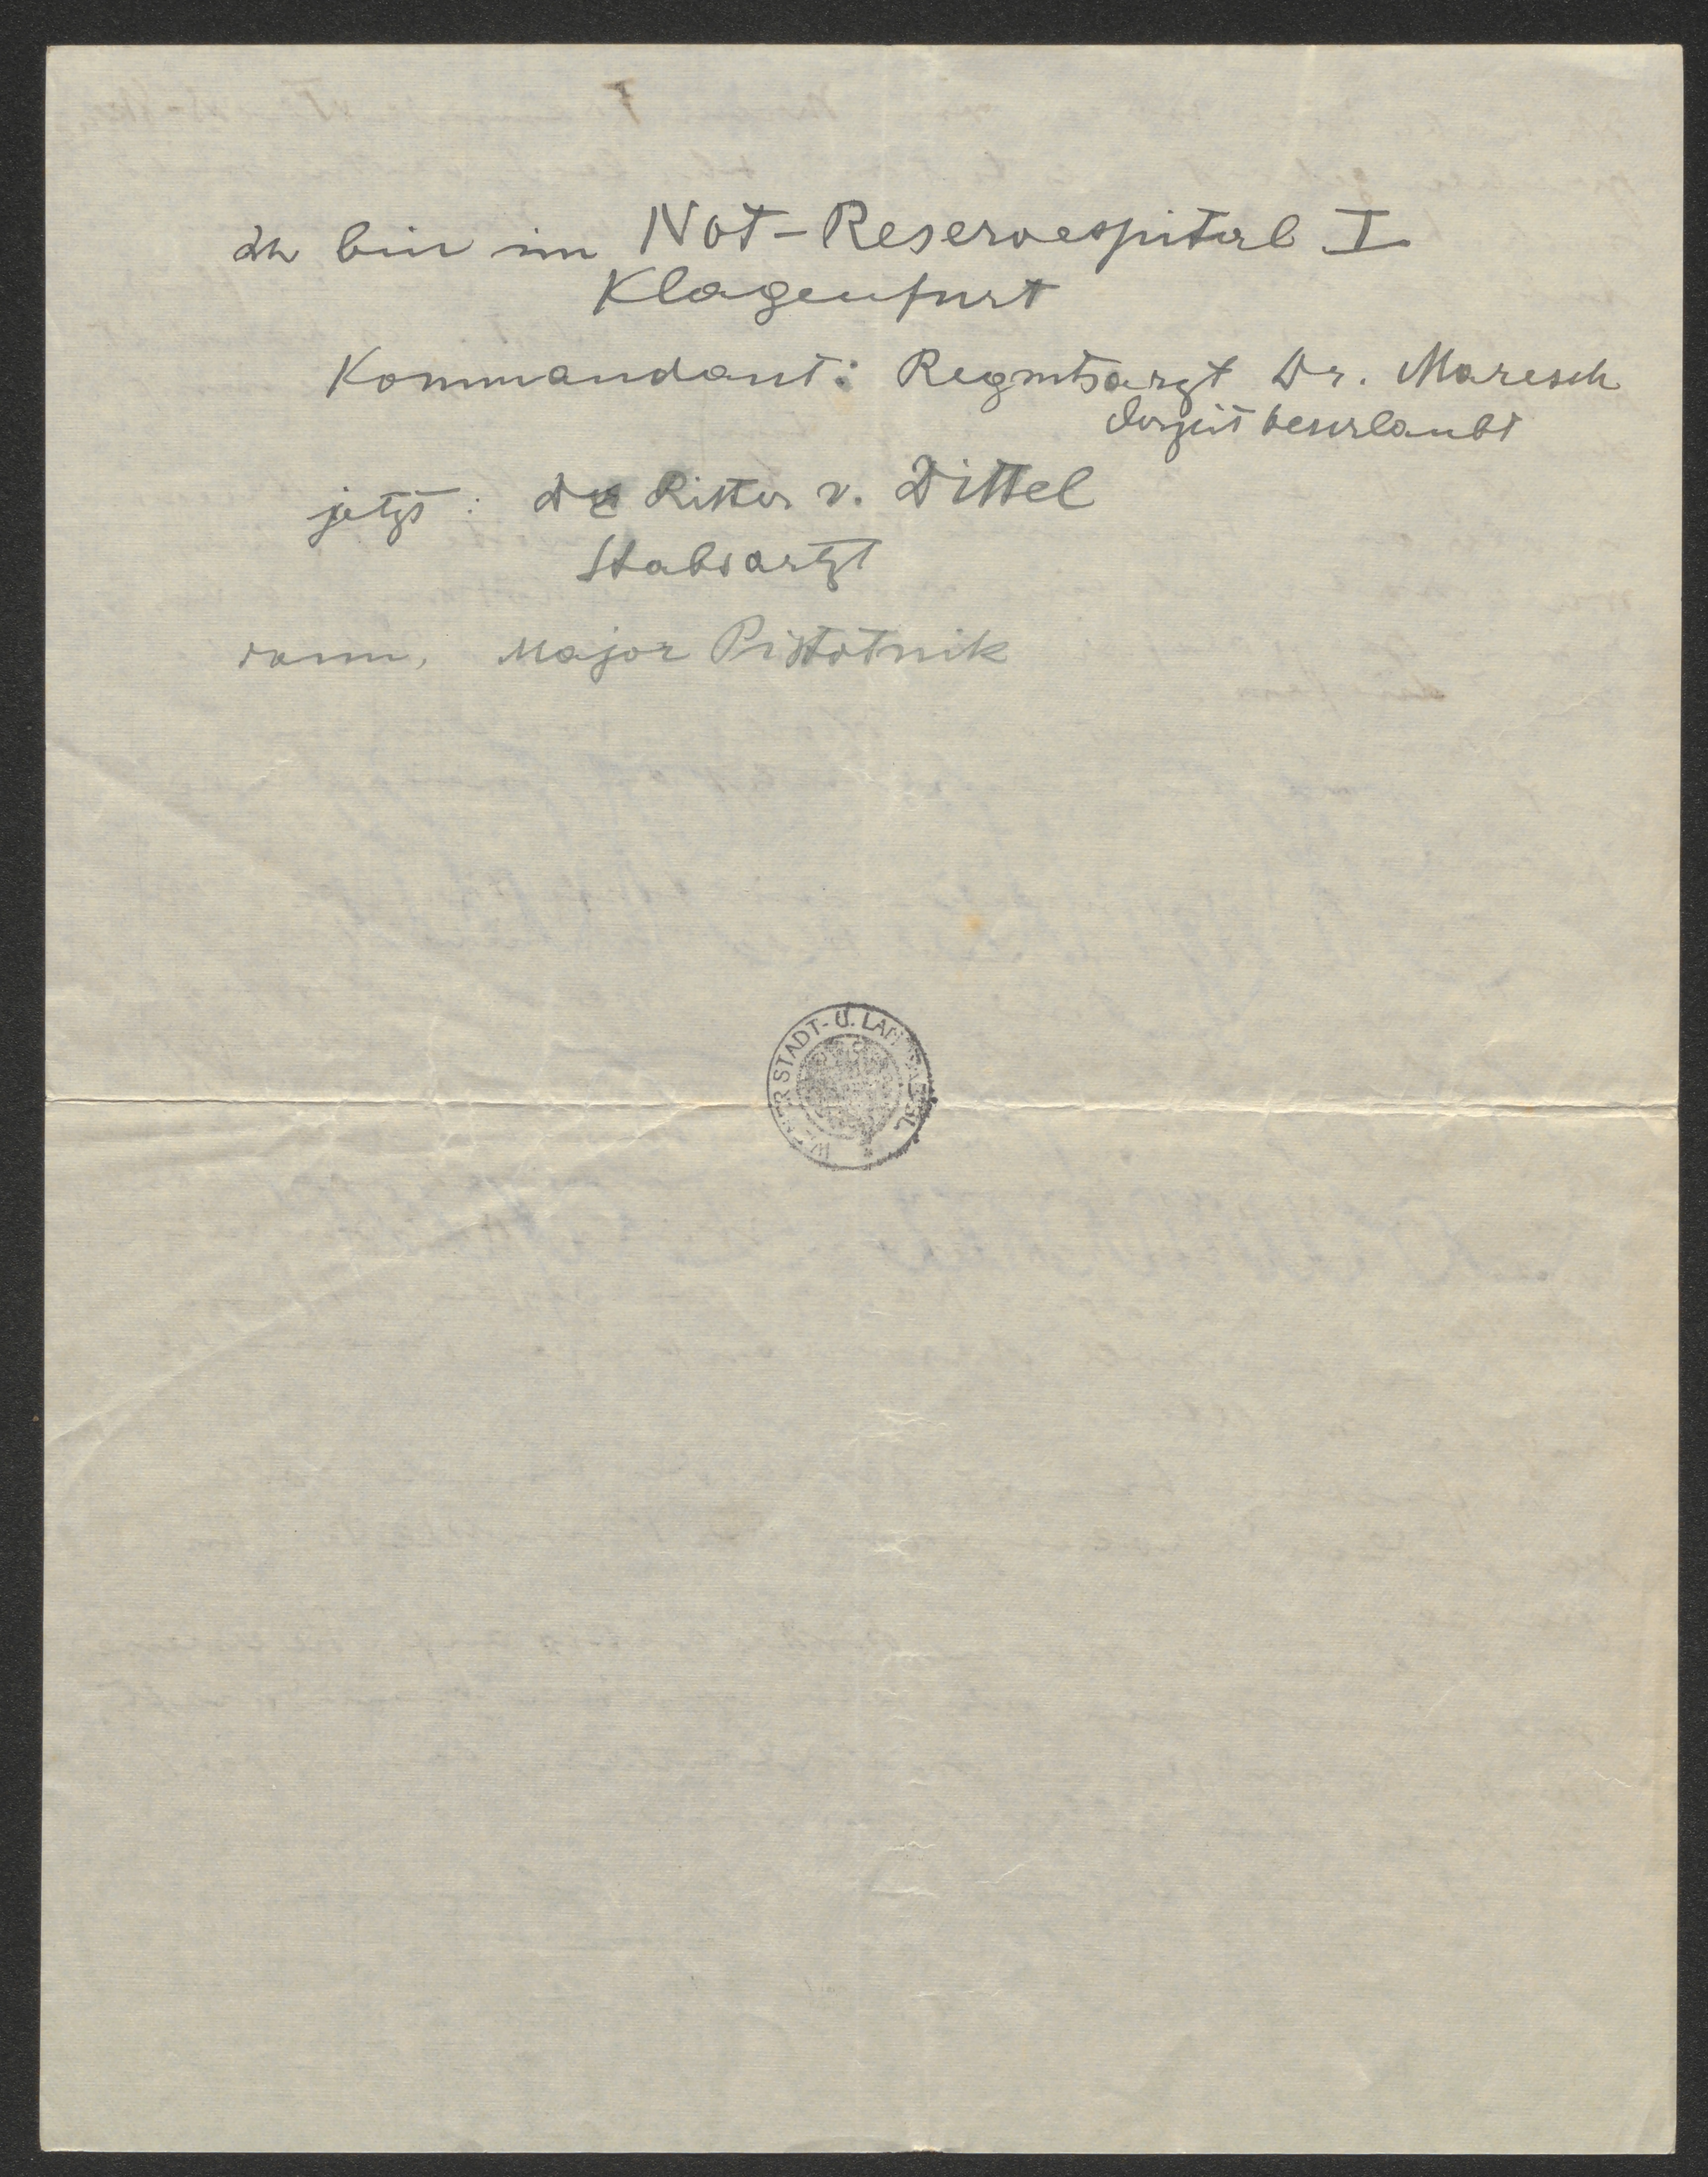 Ich bin im Not-Reservespital I
Klagenfurt
Kommandant: Regmtsarzt Dr. Maresch
derzeit beurlaubt
jetzt: Dr Ritter v. Dittel
Stabsarzt
dann, Major Pistotnik
WIENER STADT- U. LANDES